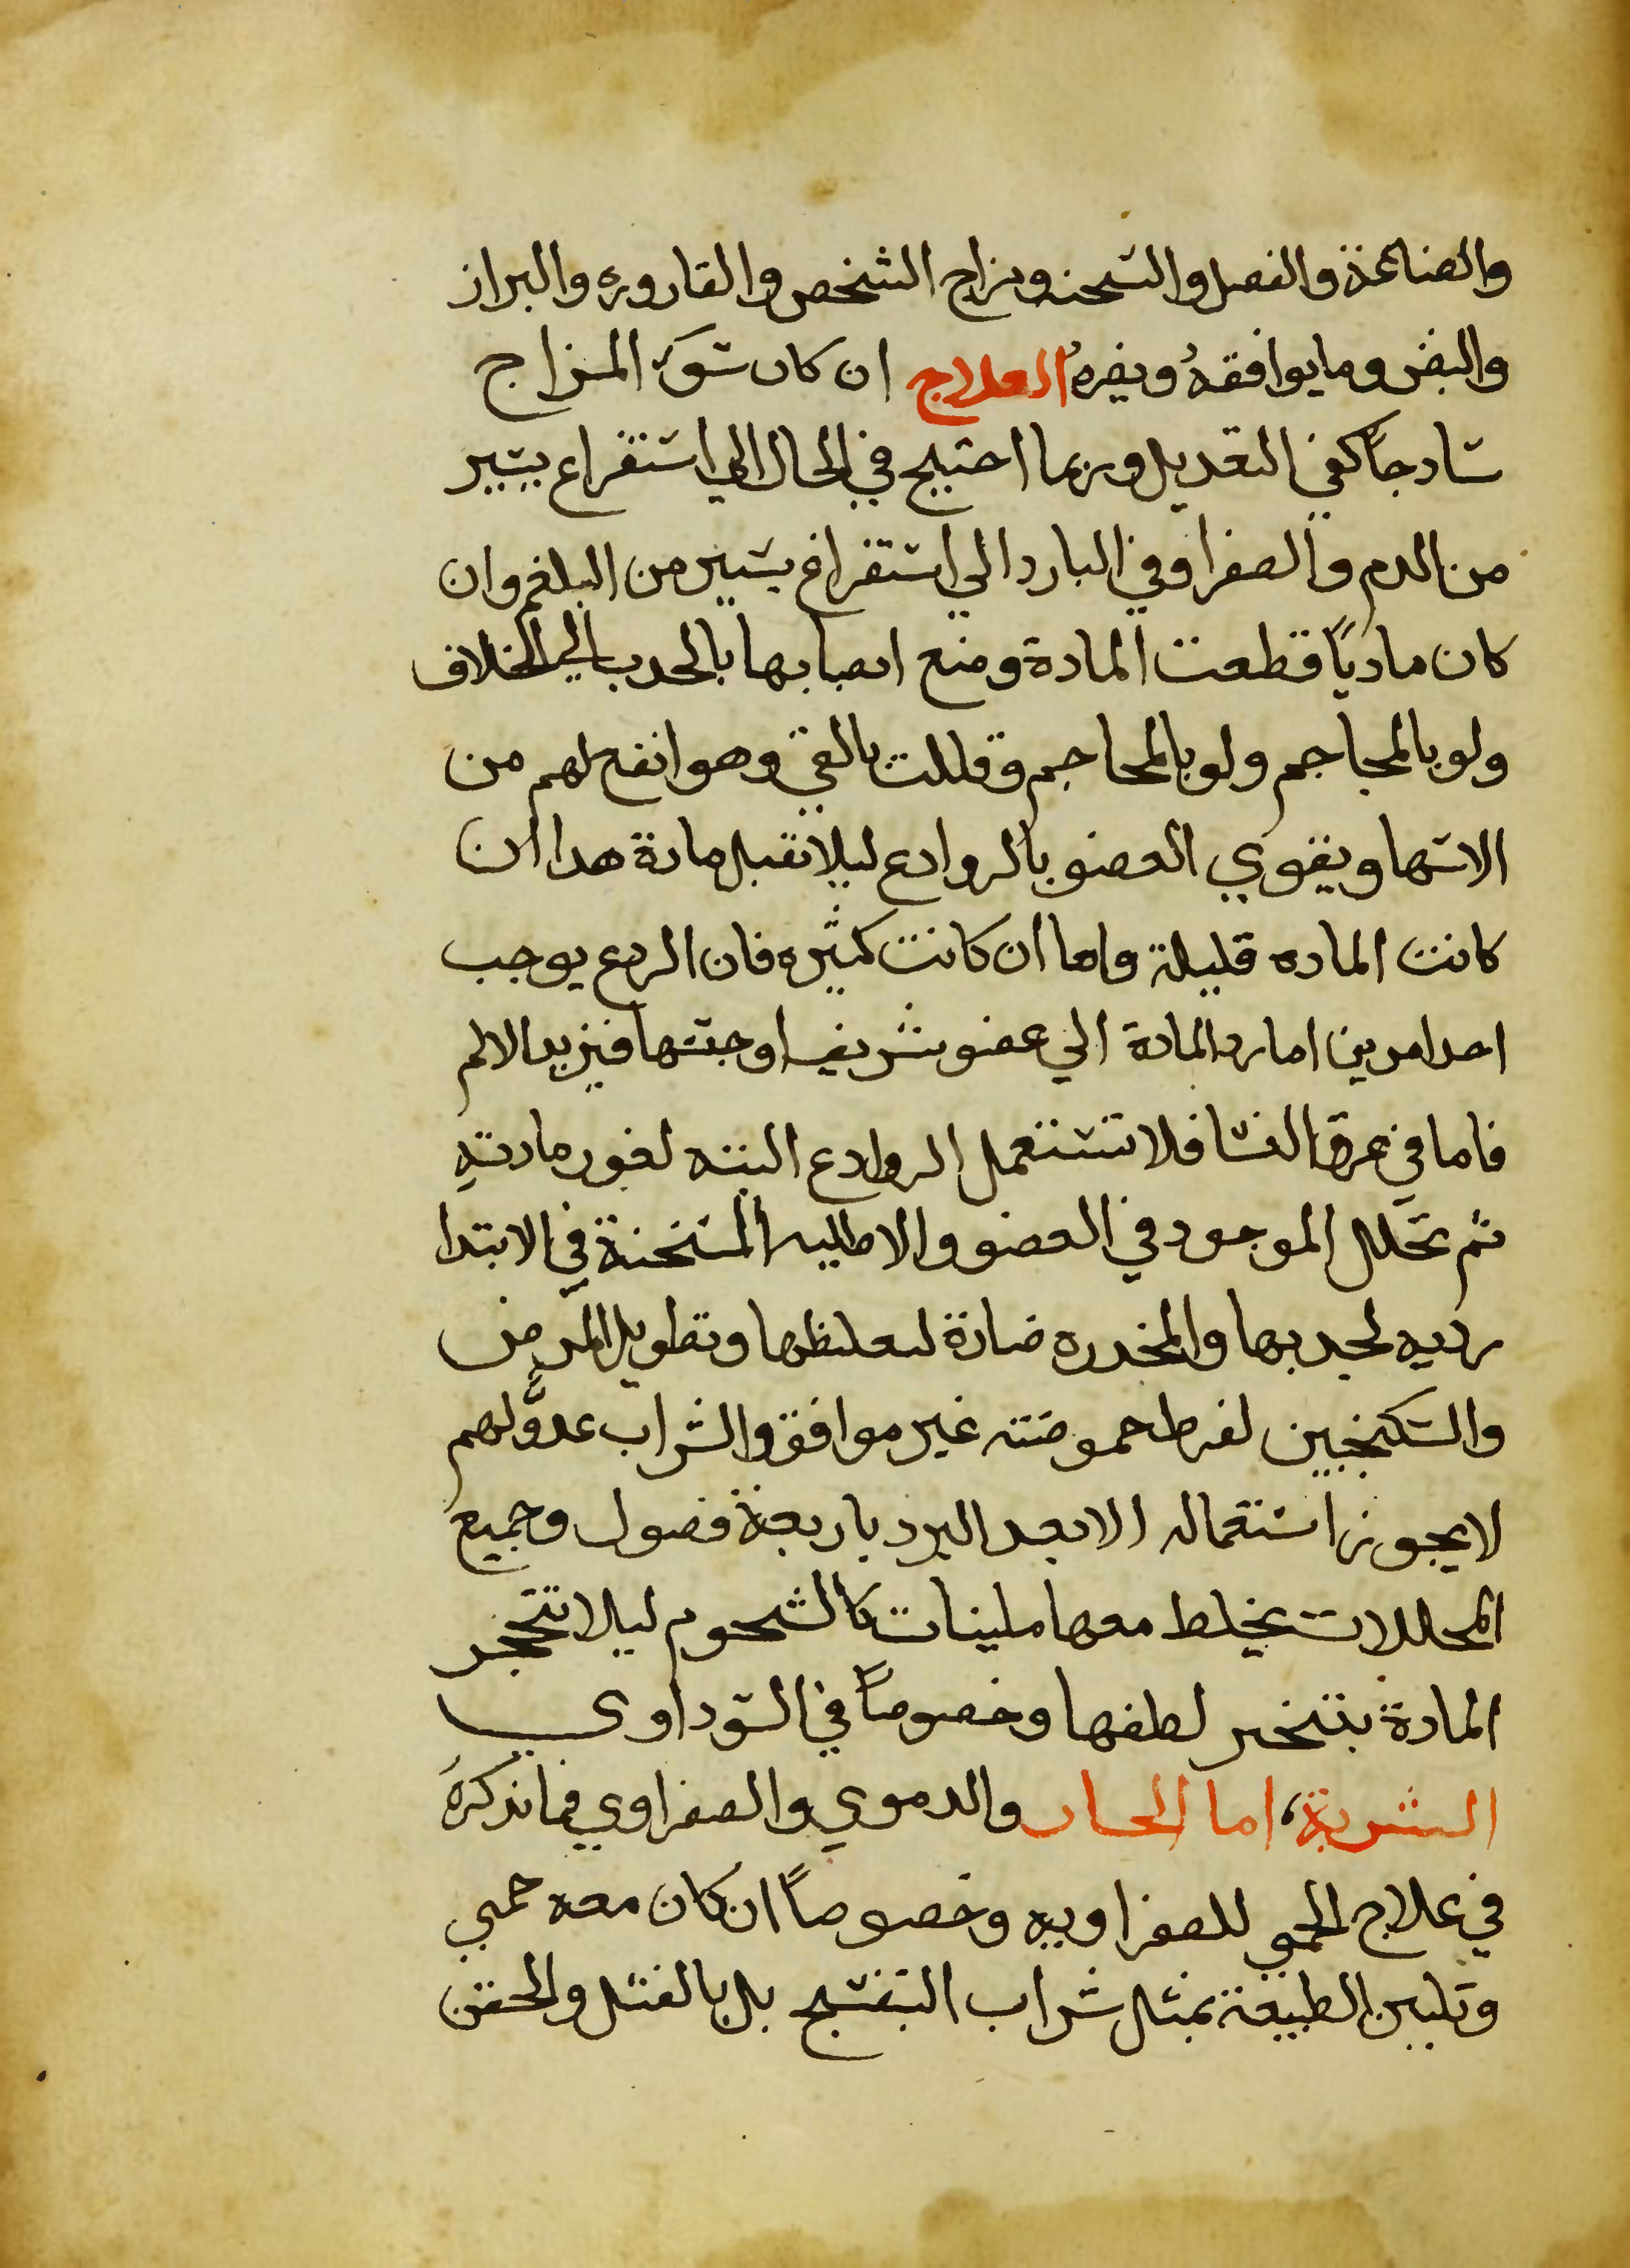 والصناعة والفصل والسحنه ومزاج الشخص والقاروره والبراز
والنبض وما يوافقهُ ويضرهُ العلاج ان كان سوَء المزاج
سادجاً كفي التعديل وربما احتيج في الحال الي استفراع يسير
من الدم والصفرا وفي البارد الي استفراغ يسير من البلغم وان
كان مادياً قطعت المادة ومنع انصبابها بالجدب الي الخلاف
ولو بالمحاجم ولو بالمحاجم وقللت بالقي وهو انفع لهم من
الاسهال ويقوي العضو بالروادع ليلا تقبل مادة هدا ان
كانت الماده قليلة واما ان كانت كثيره فان الردع يوجب
احد امرين اما رد المادة الي عضو شريف او حبسها فيزيد الالم
فاما في عرق النسا فلا تستعمل الروادع البته لغور مادتهِ
ثم تحلل الموجود في العضو والاطليه المسخنة في الابتدا
رديه لجدبها والمخدره ضارة لتغلظها وتطويل المرض
والسكنجبين لفرط حموضته غير موافق والشراب عدوٌّ لهم
لا يجوز استعماله الا بعد البرد باربعة فصول وجميع
المحللات يخلط معها ملينات كالشحوم ليلا تتحجر
المادة بتبخر لطفها وخصوصاً في السوداوي
الشربة، اما الحار والدموي والصفراوي فما نذكرهَ
في علاج الحمي للصفراويه وخصوصاً ان كان معه حمي
وتليين الطبيعة بمثل شراب البنفسج بل بالفتل والحقن